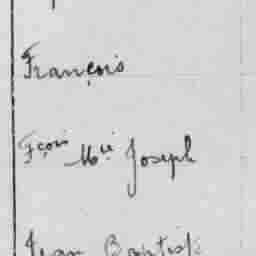 François
Fçois Mie Joseph
Jean Baptiste